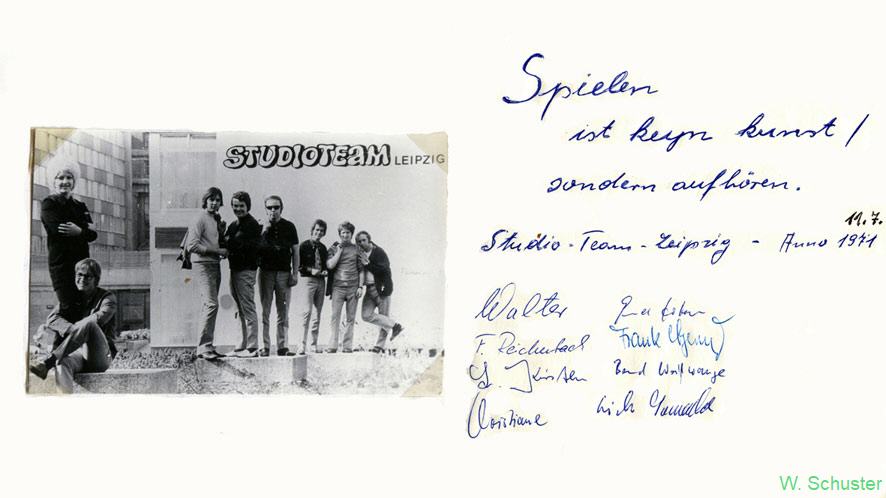 STUDIOTEAM LEIPZIG
Spielen
ist keyn kunst /
sondern aufhören.
11.7.
Studio-Team-Leipzig - Anno 1971
Walter
F. Reichenbach
Frank
Christiane
Bernd
W. Schuster